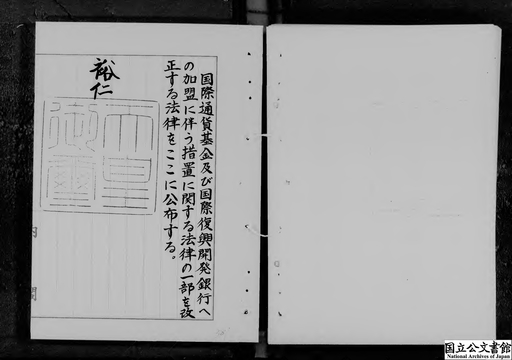 国際通貨基金及び国際復興開発銀行へ
の加盟に伴う措置に関する法律の一部を改
正する法律をここに公布する。
裕仁
天皇
御璽
内
閣
国立公文書館
National Archives of Japan